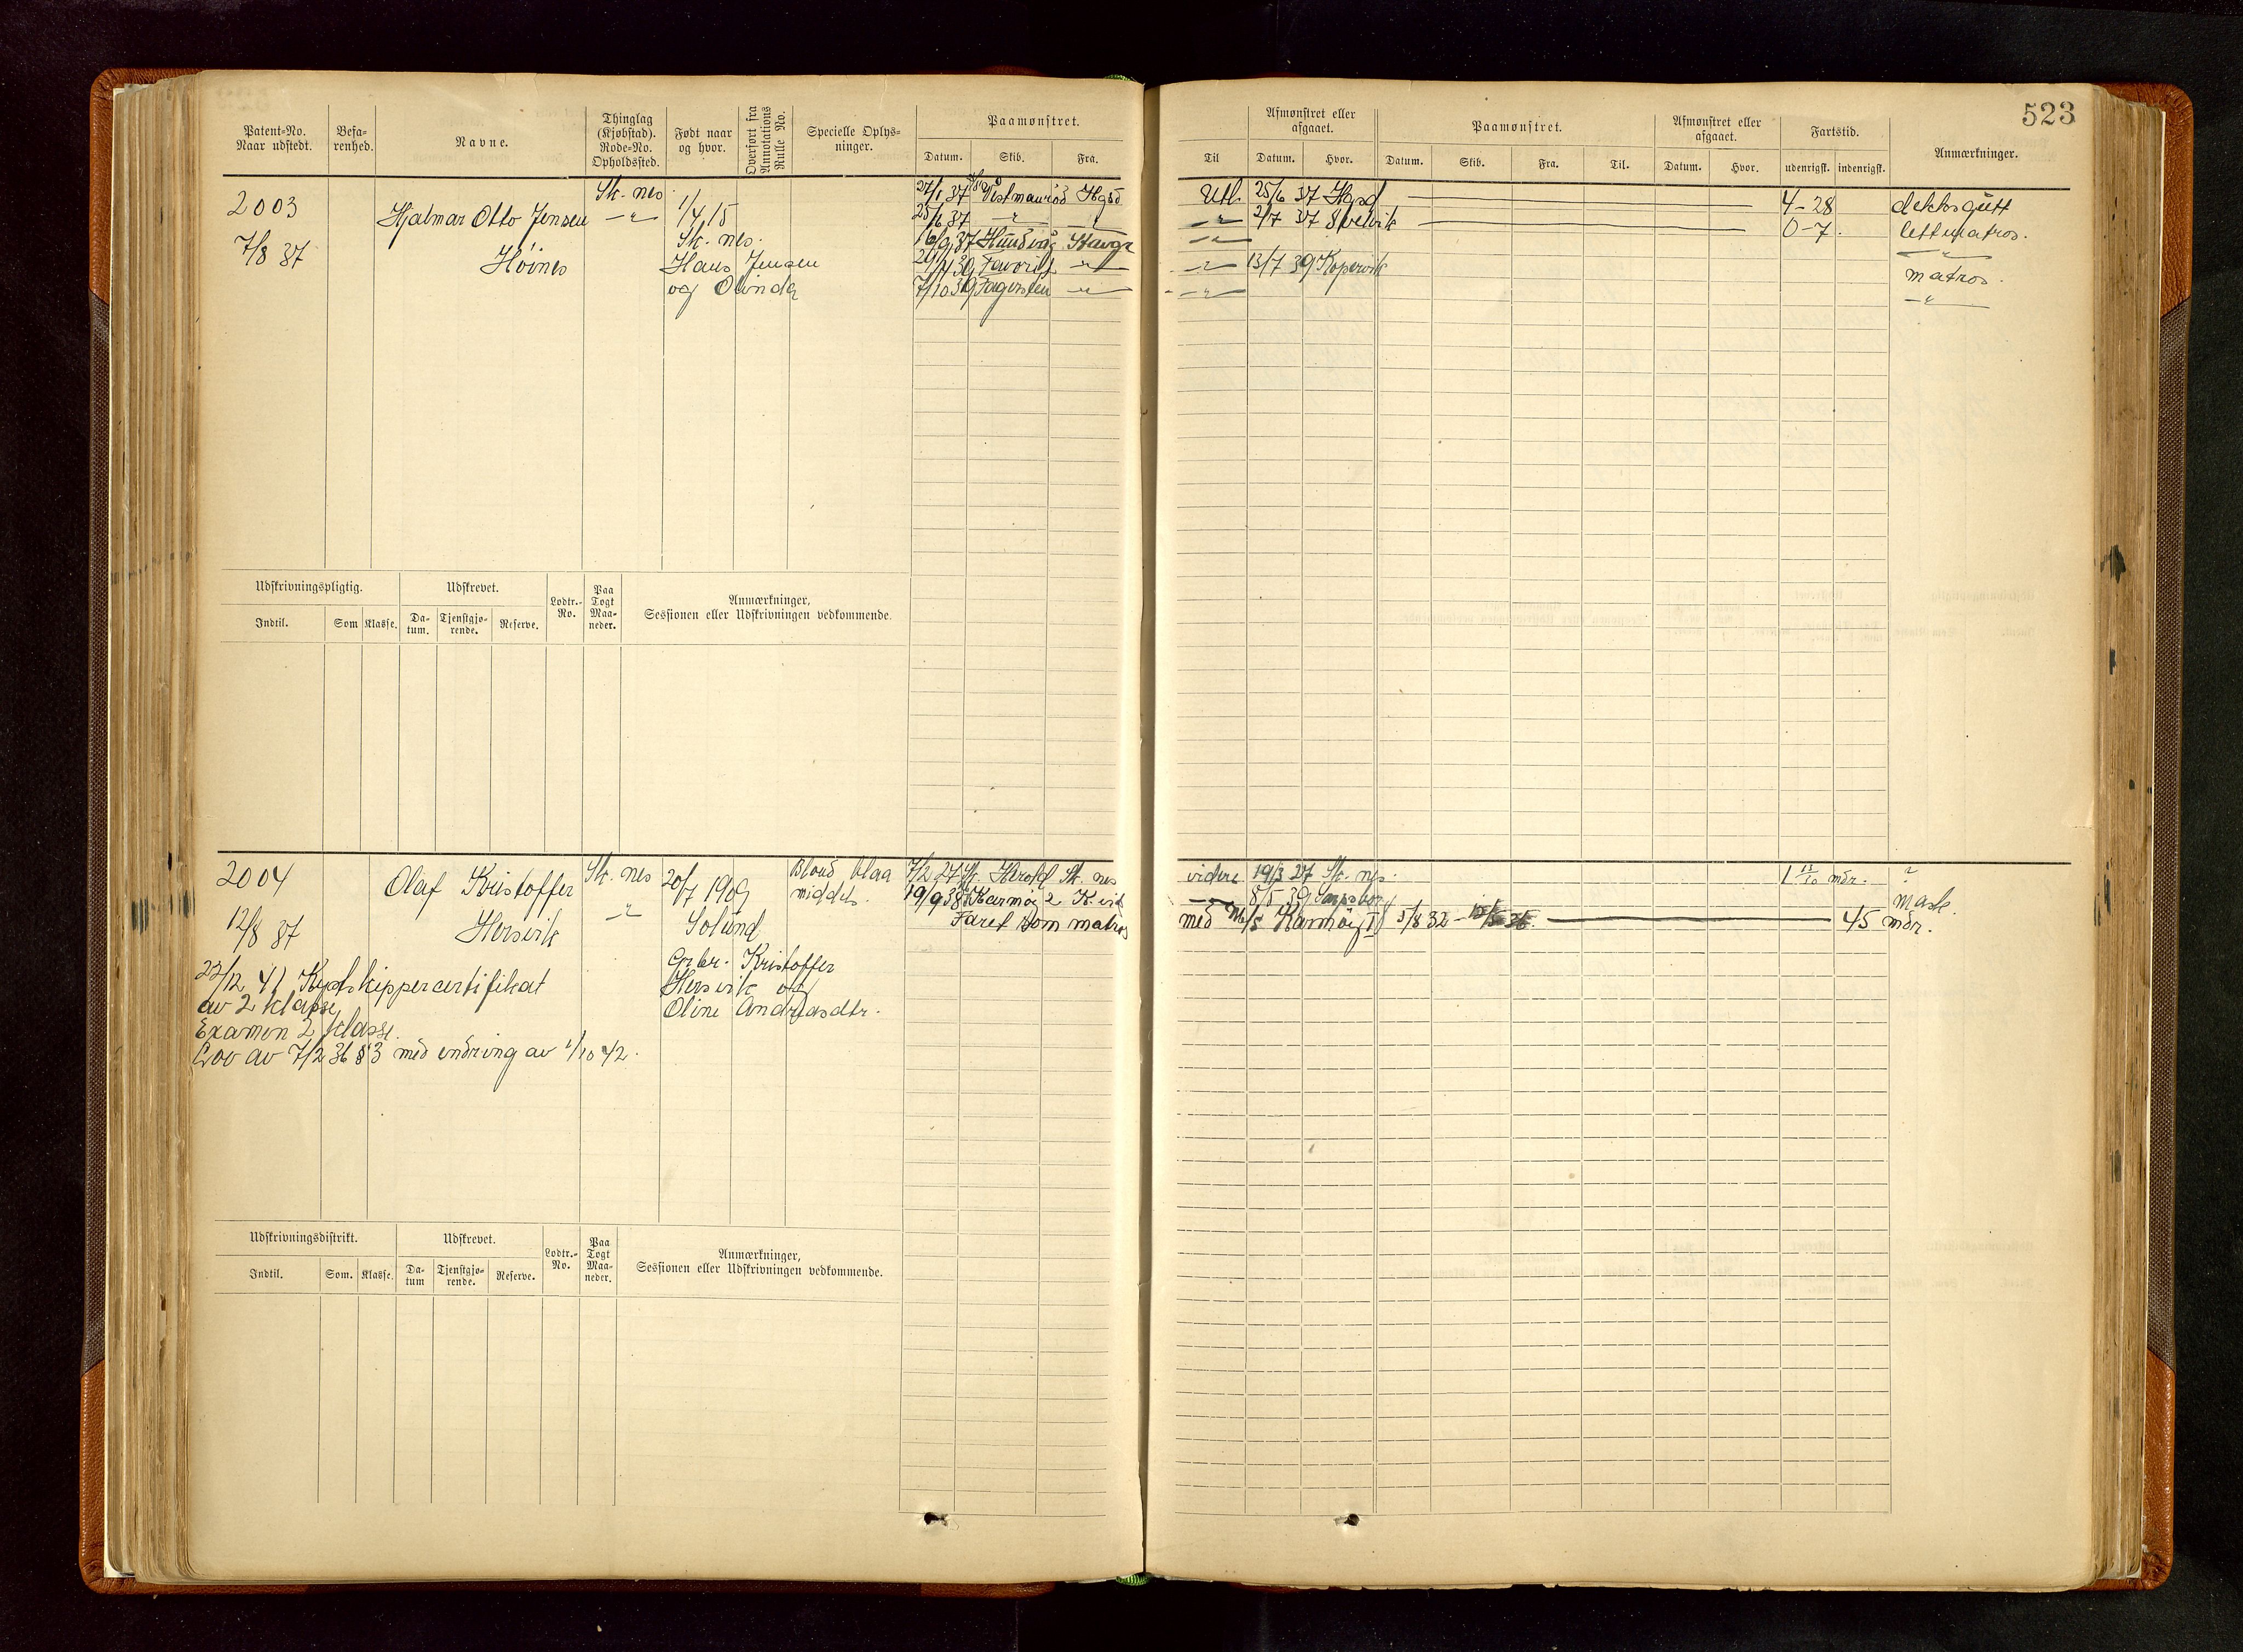 523
Patent-No. Naar udstedt.
Befa-renhed.
Navne.
Thinglag (Kjøbstad). Rode-No. Opholdssted.
Født naar og hvor.
Overført fra Annotations Rulle No.
Specielle Oplys-ninger.
Paamønstret.
Datum. Skib. Fra.
Til
Afmønstret eller afgaaet.
Datum. Hvor.
Paamønstret.
Datum. Skib. Fra. Til.
Afmønstret eller afgaaet.
Datum. Hvor.
Fartstid.
udenrigsk. indenrigsk.
Anmærkninger.
2003
7/8 37
Hjalmar Otto Jensen
Höines
Sk. nes
—"—
1/4 15
Sk. nes.
Hans Jensen
og Olinda
27/1 37 Vestmanröd Hgsd Utl. 25/6 37 Hgsd 4-28 dekksgutt
25/6 37 —"— —"— —"— 2/7 37 Svelvik 0-7. lettmatros.
16/9 37 Hundvåg Stavgr —"— —"—
Favorit —"— —"— 13/7 39 Kopervik matros.
7/10 39 Fagersten —"— —"— —"—
Udskrivningspligtig.
Indtil. Som Klasse.
Udskrevet.
Da-tum. Tjenstgjø-rende. Reserve.
Lodtr.-No.
Paa Togt Maa-neder.
Anmærkninger,
Sessionen eller Udskrivningen vedkommende.
2004
12/8 37
Olaf Kristoffer
Hersvik
Sk. nes
—"—
20/7 1909
Solund
Grbr. Kristoffer
Hersvik og
Oline Andreasdtr.
Blond blaa
middels.
7/2 27 Herold Sk. nes videre 19/3 27 Sk. nes. mdr.
19/9 38 Karmöy 2 K.vik —"— 8/5 39 Sarpsborg mask.
Faret som matros med M/S Karmöy II 5/8 32 - 45 mdr.
22/12 41 Kystskippercertifikat
av 2 klasse
Examen 2 klasse.
Lov av 7/2 36 § 3 med endring av 1/10 42.
Udskrivningsdistrikt.
Indtil. Som. Klasse.
Udskrevet.
Da-tum Tjenstgjø-rende. Reserve.
Lodtr.-No.
Paa Togt Maa-neder.
Anmærkninger,
Sessionen eller Udskrivningen vedkommende.